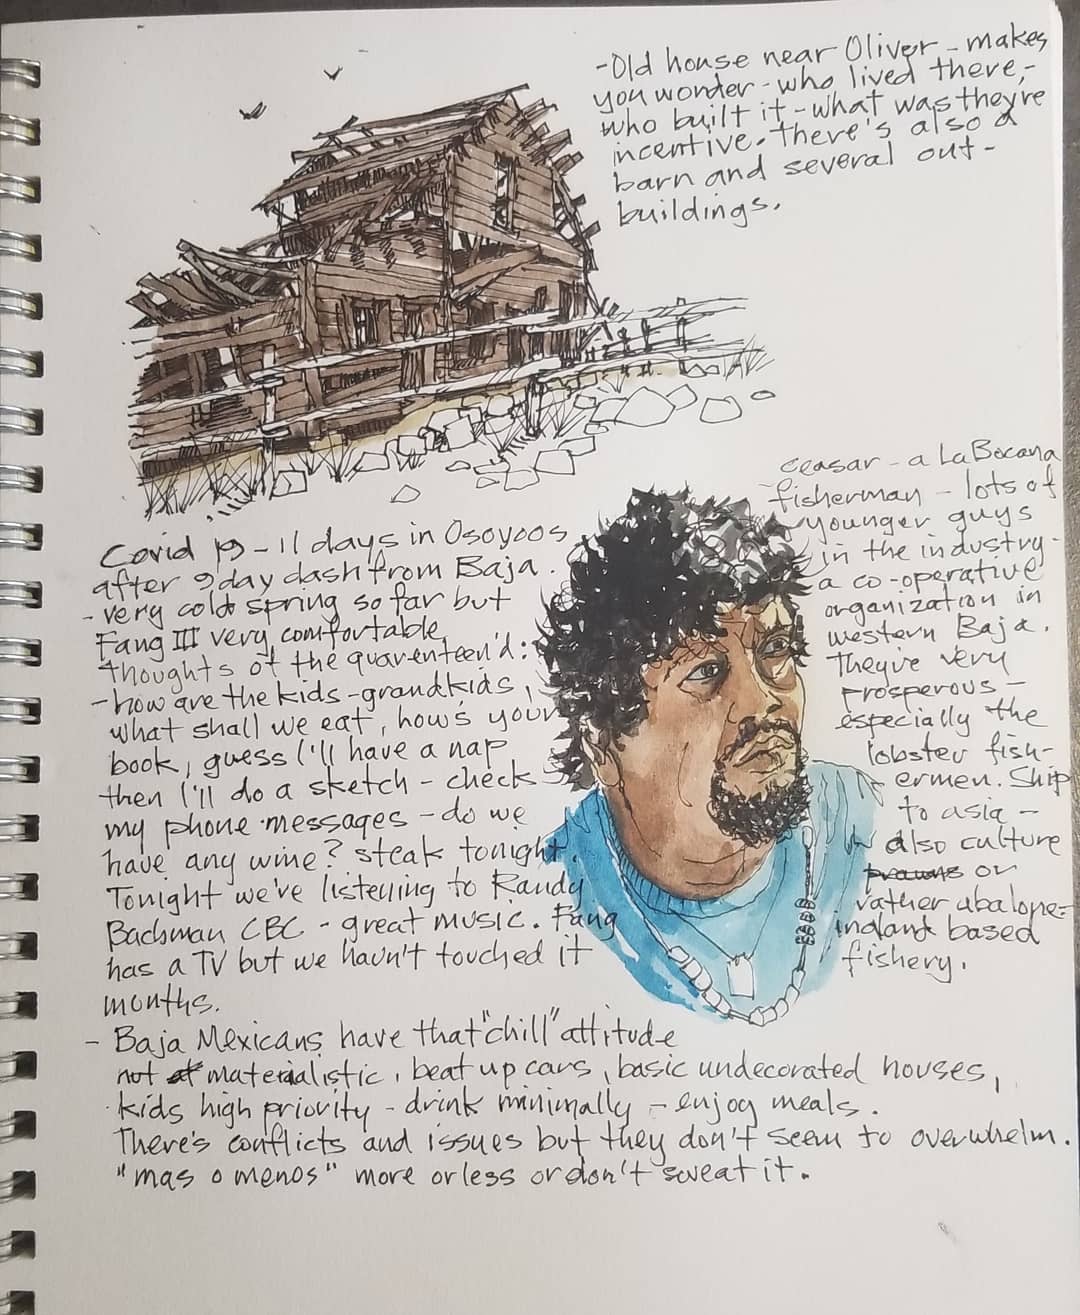 -Old house near Oliver - makes
you wonder - who lived there,-
who built it - what was they're
incentive. there's also a
barn and several out-
buildings.
Ceasar - a La Bocana
fisherman - lots of
younger guys
in the industry -
a co-operative
organization in
western Baja.
They're very
prosperous -
especially the
lobster fish-
ermen. Ship
to asia -
also culture
prawns or
rather abalone=
inland based
fishery.
Covid 19 - 11 days in Osoyoos
after 9 day dash from Baja.
- very cold spring so far but
Fang III very comfortable
thoughts of the quarenteen'd:
- how are the kids - grandkids,
what shall we eat, how's your
book, guess I'll have a nap
then I'll do a sketch - check
my phone messages - do we
have any wine? steak tonight.
Tonight we've listening to Randy
Bachman CBC - great music. Fang
has a TV but we havn't touched it
months.
- Baja Mexicans have that "chill" attitude
not materialistic, beat up cars, basic undecorated houses,
kids high priority - drink minimally - enjoy meals.
There's conflicts and issues but they don't seem to overwhelm.
"mas o menos" more or less or don't sweat it.